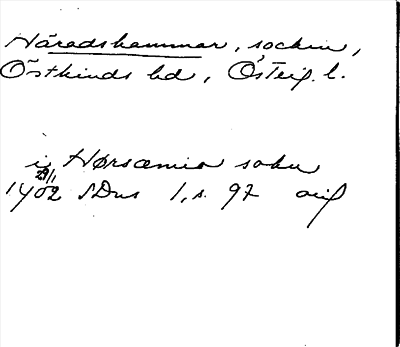 Häradshammar, socken,
Östkinds hd, Östg. l.
i Hørsæmia sokn
29/1
1402 SDns 1, s. 97 orig